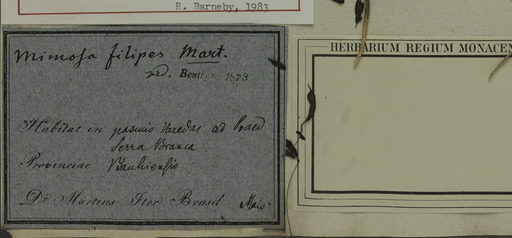 R. Barneby, 1983
HERBARIUM REGIUM MONACEN
Mimosa filipes Mart.
Benth 1873
Habitat in pascuis Varedas ad Praed
Serra Branca
Provinciae Bauhiensis
Dr Martius Iter Brasil. Maio